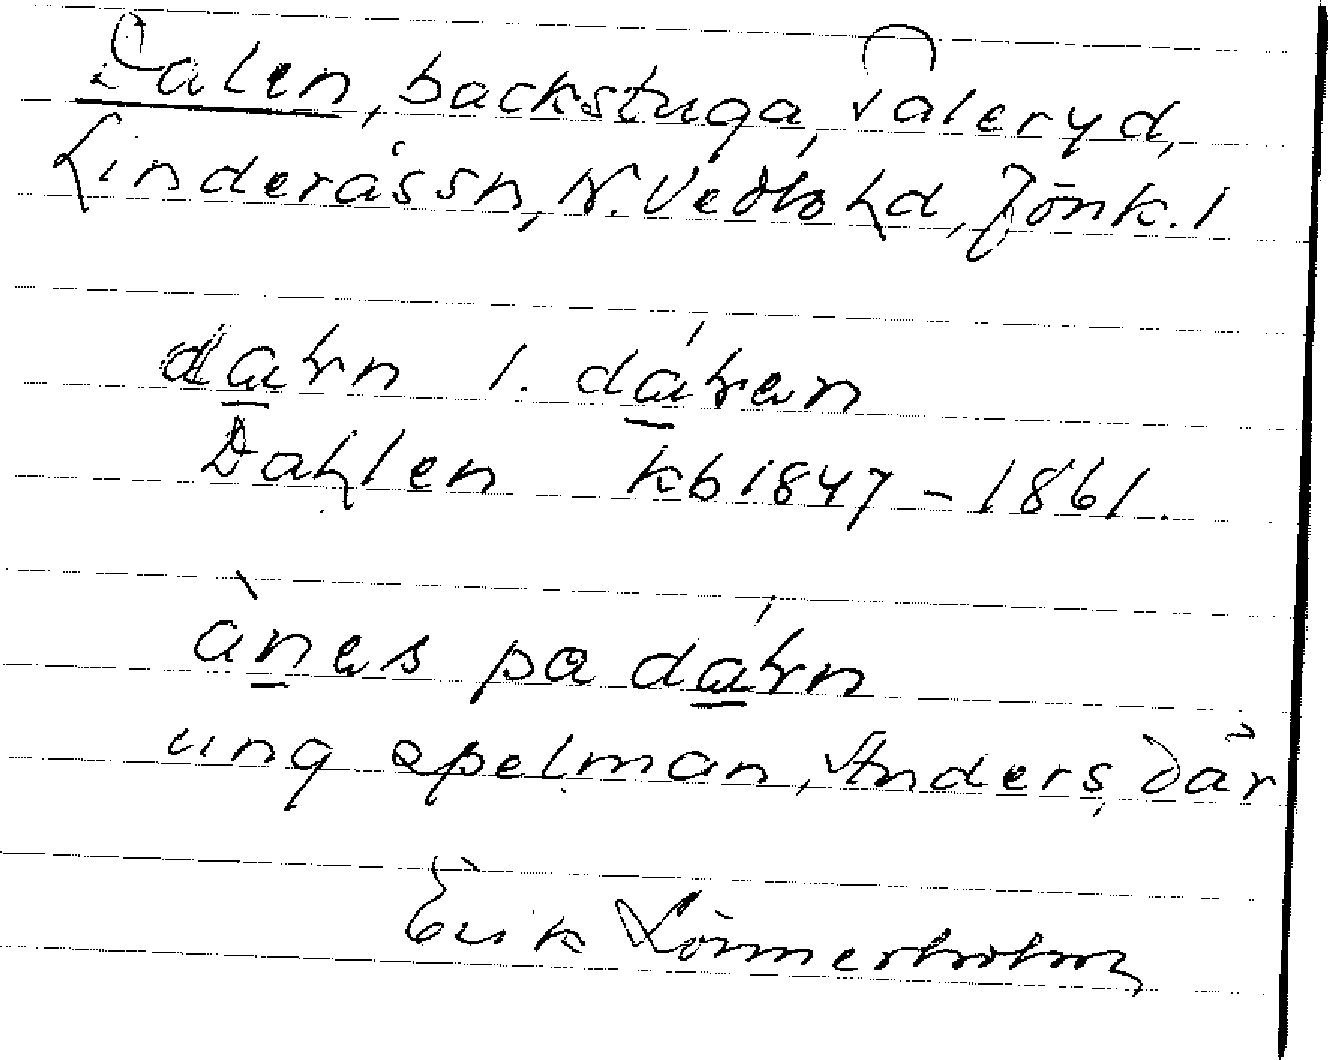 Dalen, backstuga, Taleryd,
Linderås sn, N. Vedbo hd, Jönk. l
darn l. dáran
Dahlen kb 1847-1861.
ànas pa dárn
ung spelman, Anders, där
Erik Lönnerholm